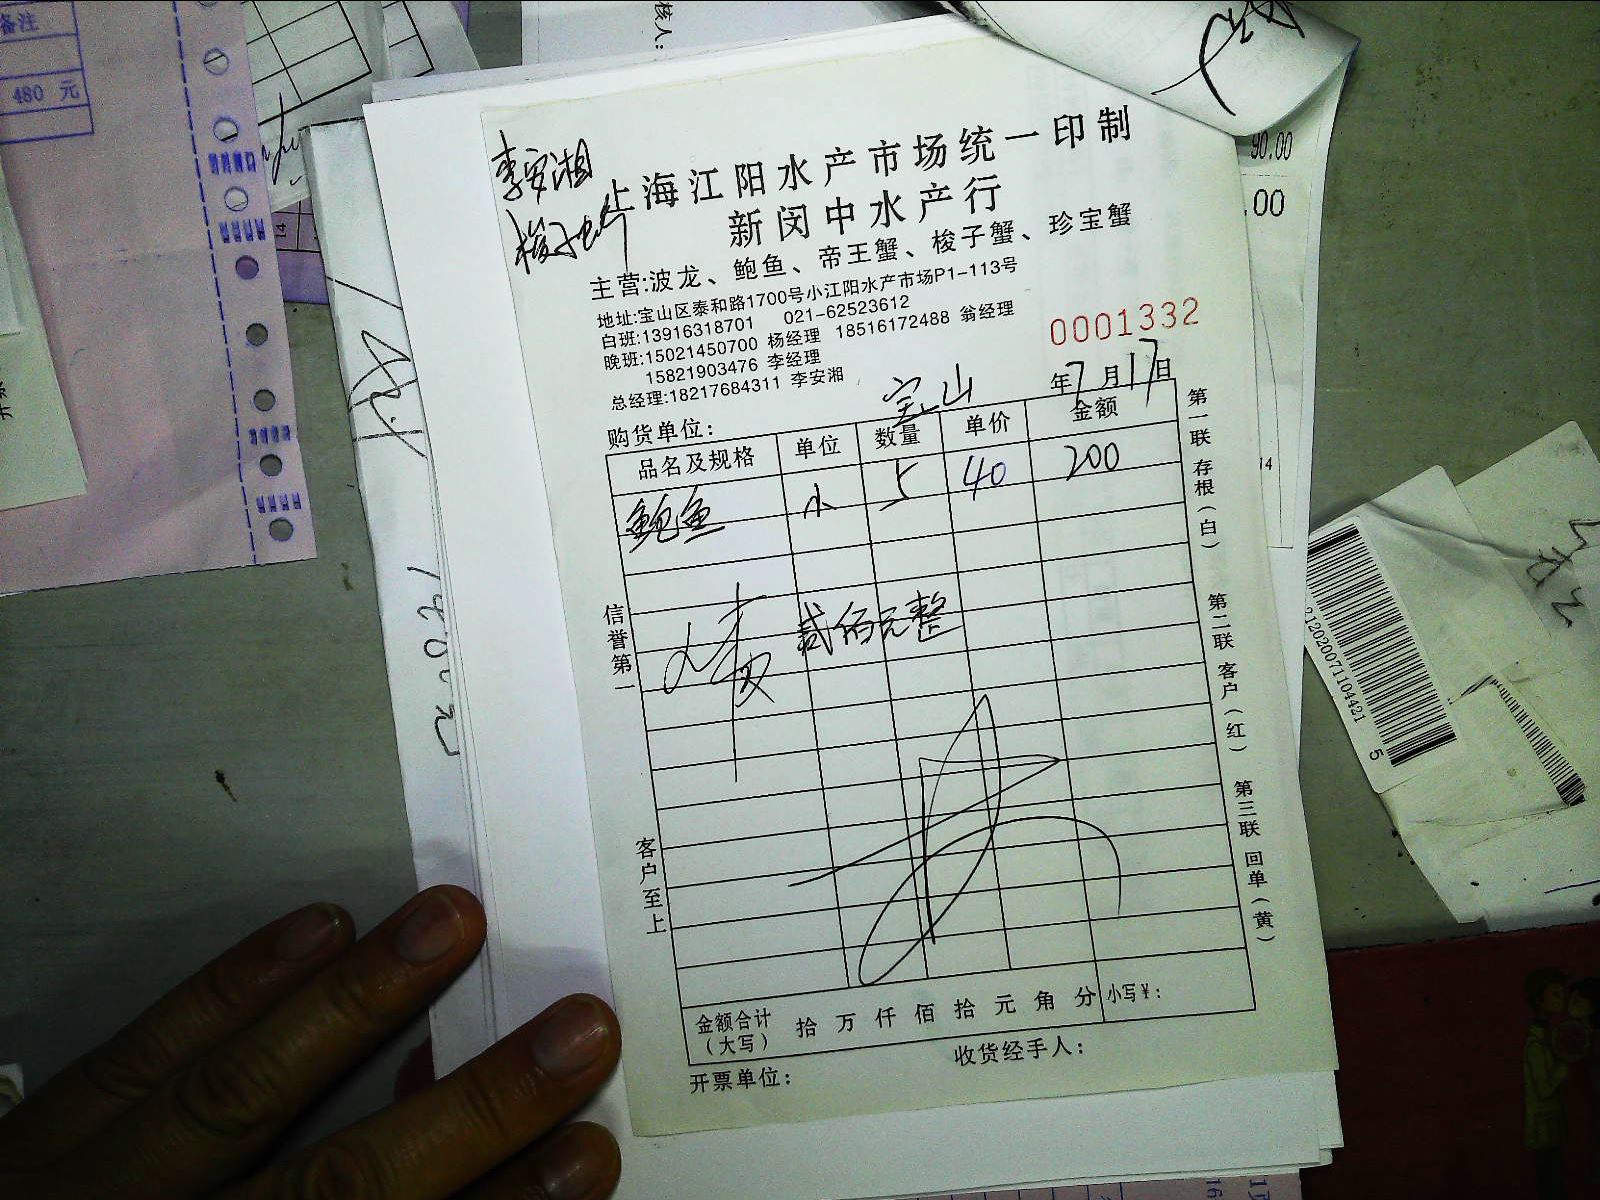 备注
480 元
核人:
90.00
.00
李安湘
梭子蟹
上海江阳水产市场统一印制
新闵中水产行
主营:波龙、鲍鱼、帝王蟹、梭子蟹、珍宝蟹
地址:宝山区泰和路1700号小江阳水产市场P1-113号
白班:13916318701 021-62523612
晚班:15021450700 杨经理 18516172488 翁经理
15821903476 李经理
总经理:18217684311 李安湘
0001332
年7月17日
购货单位: 宝山
品名及规格 单位 数量 单价 金额
鲍鱼 小 5 40 200
贰佰元整
信誉第一
客户至上
第一联 存根(白)
第二联 客户(红)
第三联 回单(黄)
金额合计(大写) 拾万仟佰拾元角分 小写¥:
收货经手人:
开票单位:
14
14
212020071104421 5